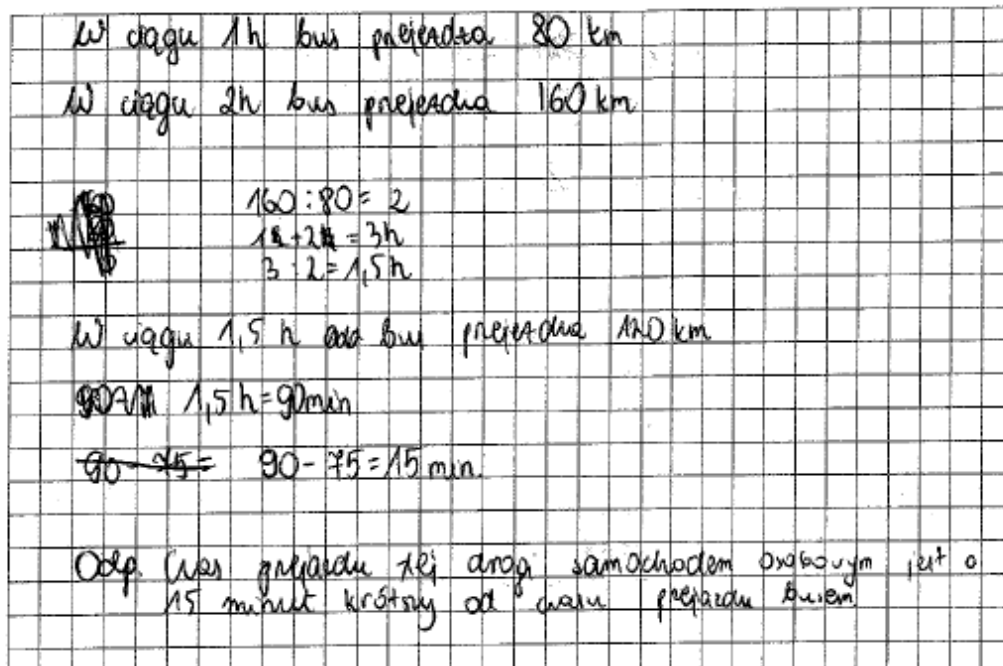 W ciągu 1h bus przejeżdża 80 km
W ciągu 2h bus przejeżdża 160 km
160 : 80 = 2
1h + 2h = 3h
3 : 2 = 1,5 h
W ciągu 1,5 h bus przejeżdża 120 km
1,5 h = 90 min
90 - 75 = 90 - 75 = 15 min.
Odp. Czas przejazdu tej drogi samochodem osobowym jest o
15 minut krótszy od czasu przejazdu busem.